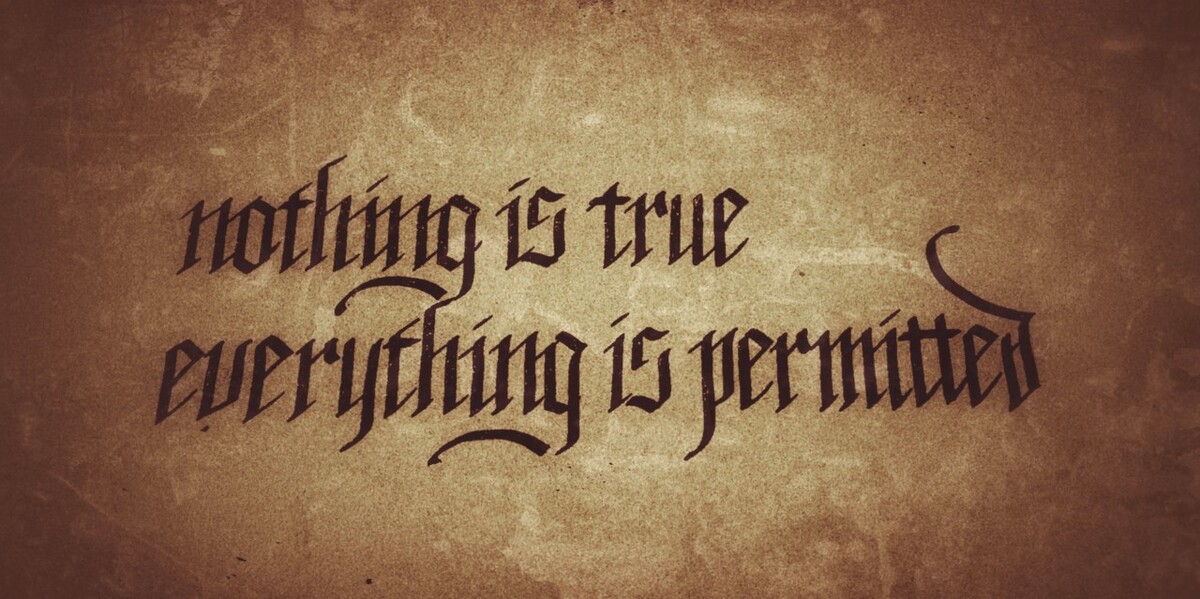 nothing is true
everything is permitted